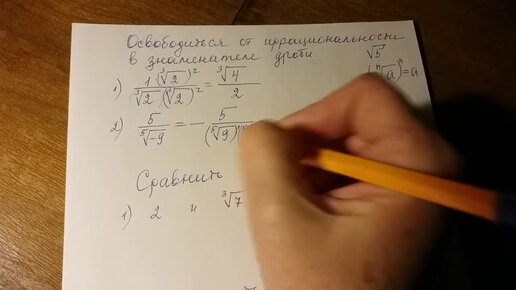 Освободиться от иррациональности
в знаменателе дроби.
√5
(ⁿ√a)ⁿ = a
1) 1·(∛2)² / ∛2·(∛2)² = ∛4 / 2
2) 5 / ⁵√-9 = - 5 / (⁵√9)
Сравнить
1) 2 и ∛7